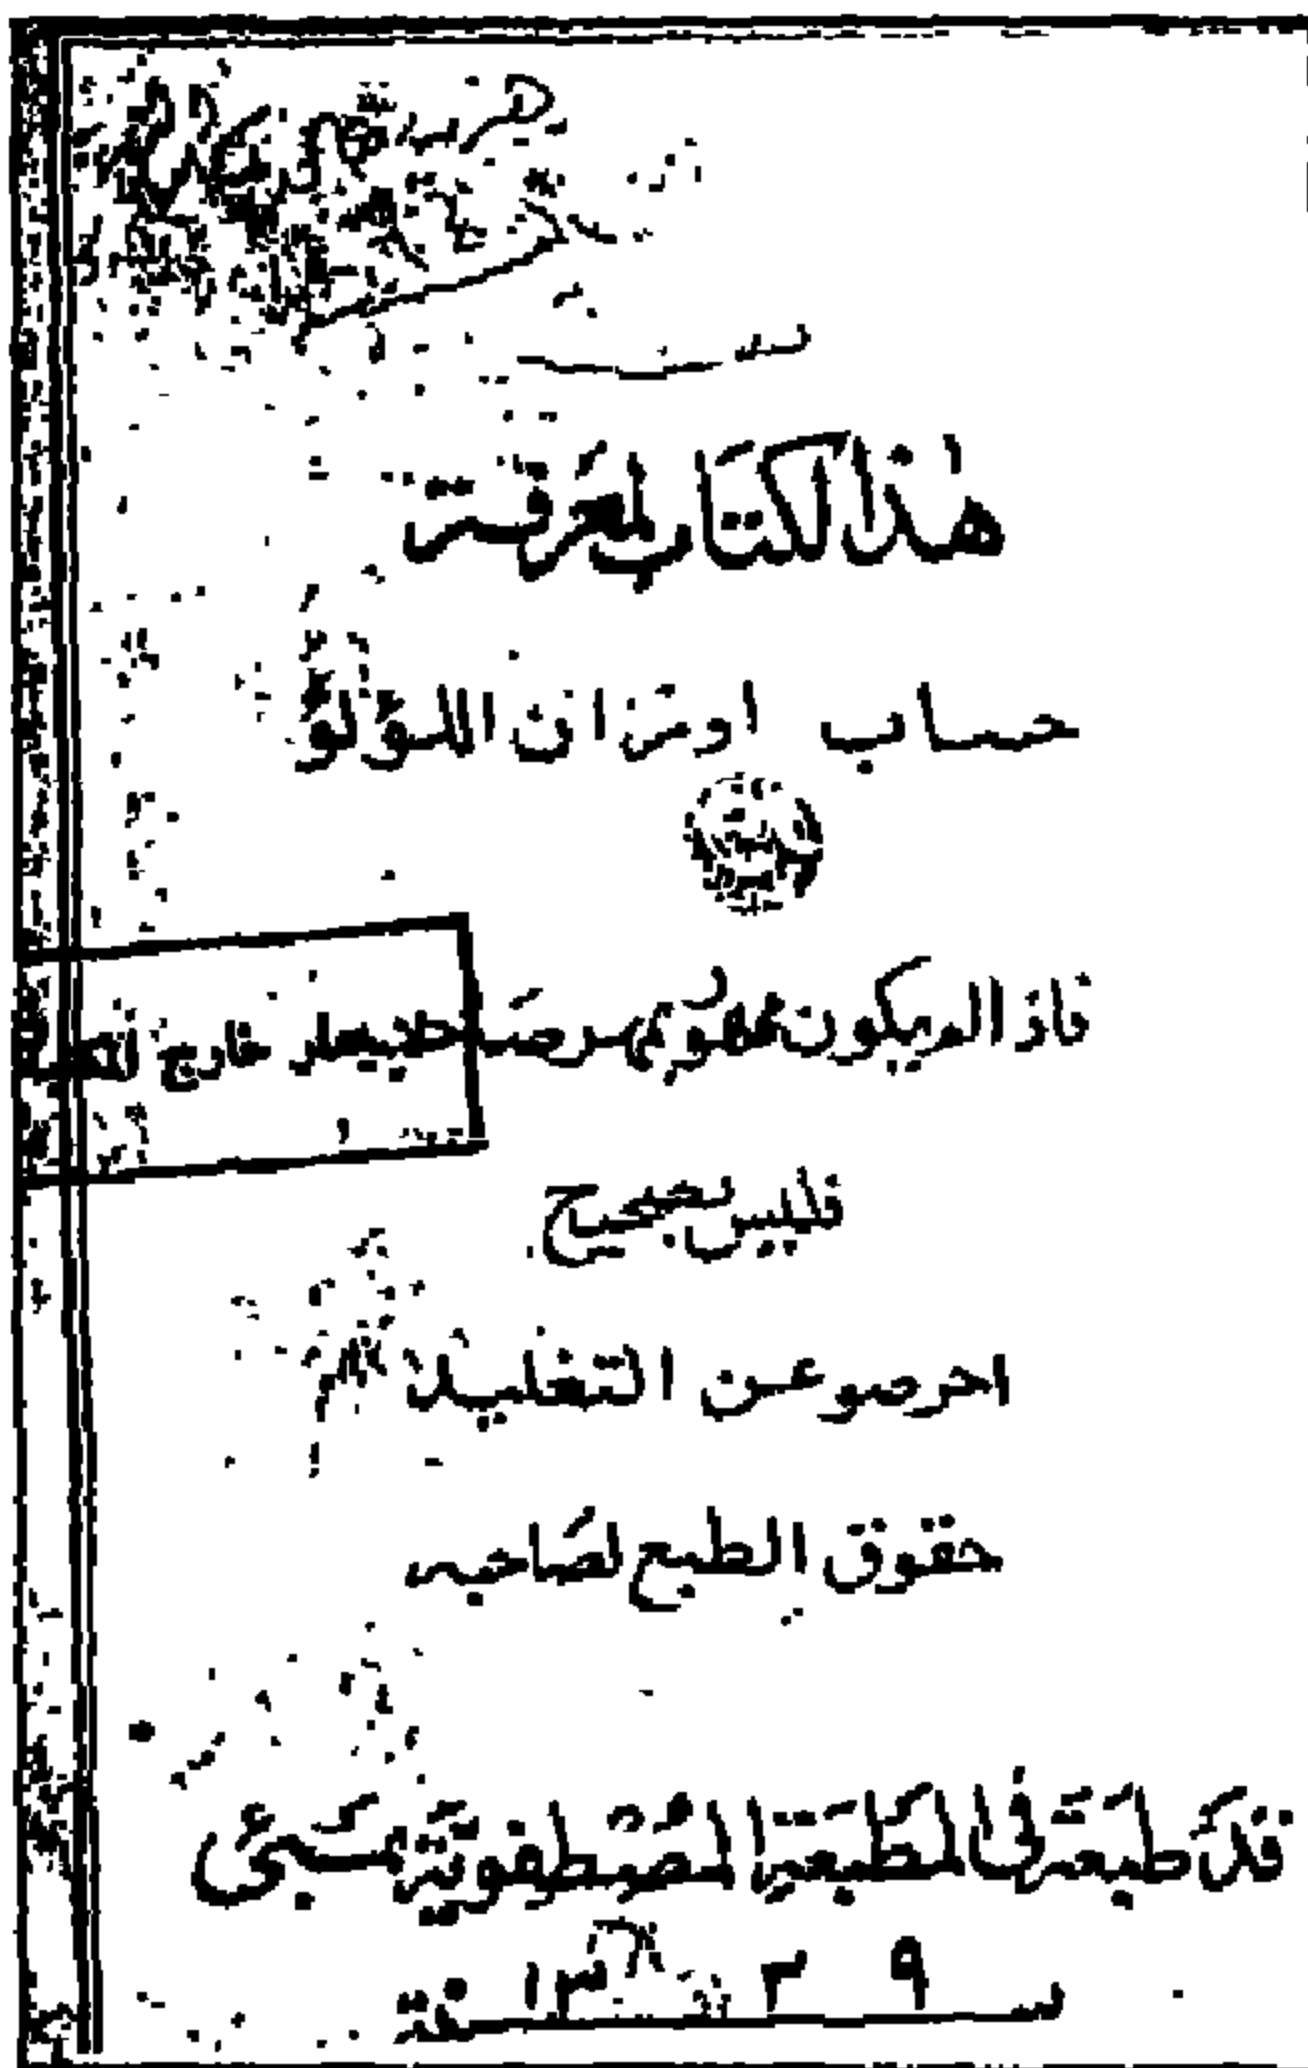 هٰذا لكتَاب لمعَرفة
حساب اوزان اللؤلؤ
فاذا لم يكون ممهور بمهر صَاحبه
فليس بصحيح
احرصو عن التغليد
حقوق الطبع لصَاحبه
قَد طبعَة فى المَطبَعَة المصُطفويَّة بمبَئى
سنة ١٣٣٩